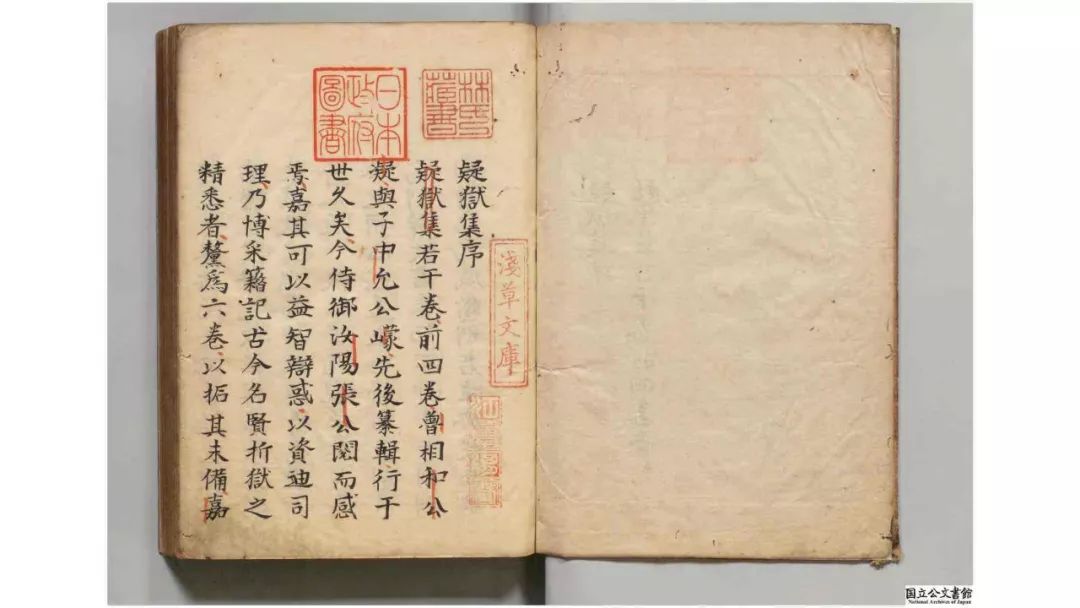 疑獄集序
疑獄集若干卷前四卷魯相和公
凝與子中允公㠓先後纂輯行于
世久矣今侍御汝陽張公閱而感
焉嘉其可以益智辯惑以資迪司
理乃博采籍記古今名賢折獄之
精悉者釐爲六卷以拓其未備嘉
林氏藏書
日本政府圖書
淺草文庫
国立公文書館
National Archives of Japan